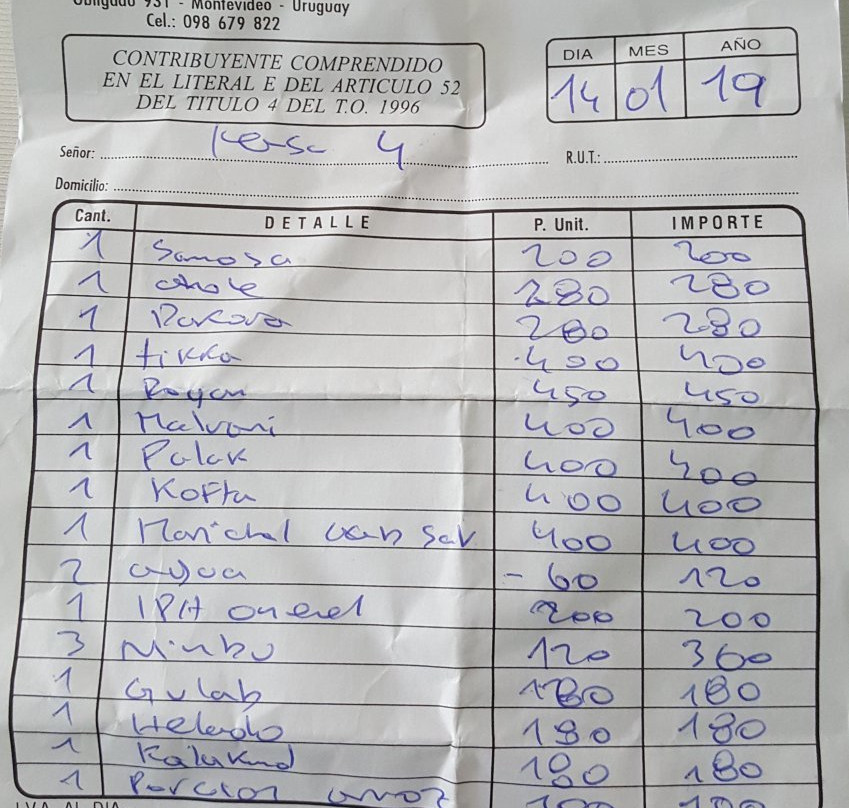 Obligado 931 - Montevideo - Uruguay
Cel.: 098 679 822
CONTRIBUYENTE COMPRENDIDO
EN EL LITERAL E DEL ARTICULO 52
DEL TITULO 4 DEL T.O. 1996
DIA MES AÑO
14 01 19
Señor: 4 R.U.T.:
Domicilio:
Cant. DETALLE P. Unit. IMPORTE
1 Samosa 200 200
1 chole 280 280
1 Pakora 280 280
1 tikka 400 400
1 Rogan 450 450
1 Malvani 400 400
1 Palak 400 400
1 Kofta 400 400
1 400 400
2 agua - 60 120
1 IPA 200 200
3 Nimbu 120 360
1 Gulab 180 180
1 Helado 180 180
1 Kalakand 180 180
1 Porcion arroz
I.V.A. AL DIA